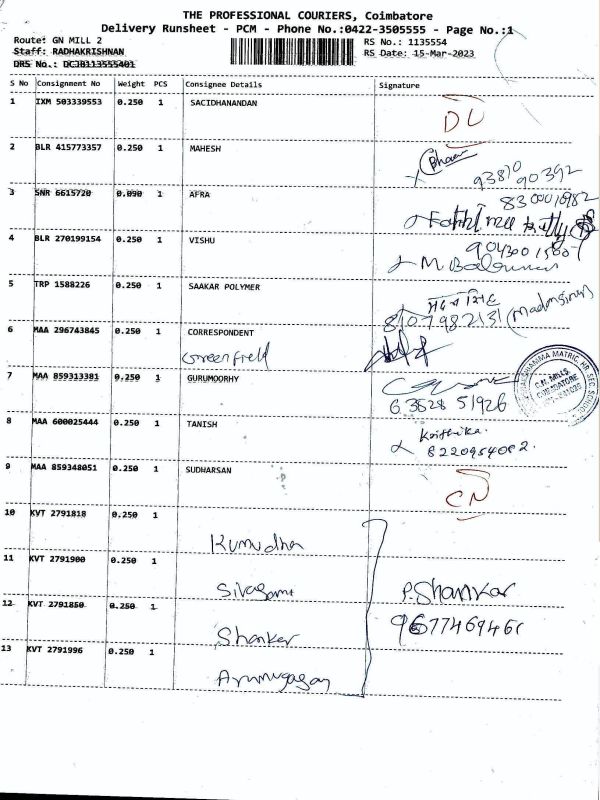 THE PROFESSIONAL COURIERS, Coimbatore
Delivery Runsheet - PCM - Phone No.:0422-3505555 - Page No.:1
Route: GN MILL 2
RS No.: 1135554
Staff: RADHAKRISHNAN
RS Date: 15-Mar-2023
DRS No.: DCJB113555401
S No Consignment No Weight PCS Consignee Details Signature
1 IXM 503339553 0.250 1 SACIDHANANDAN
DL
2 BLR 415773357 0.250 1 MAHESH
93810 90392
3 SNR 6615720 0.090 1 AFRA
4 BLR 270199154 0.250 1 VISHU
5 TRP 1588226 0.250 1 SAAKAR POLYMER
8107982131
6 MAA 296743845 0.250 1 CORRESPONDENT
Greenfield
7 MAA 859313381 0.250 1 GURUMOORHY
63828 51926
8 MAA 600025444 0.250 1 TANISH
Krithika.
9 MAA 859348051 0.250 1 SUDHARSAN
CN
10 KVT 2791818 0.250 1
Kumudha
11 KVT 2791900 0.250 1
Sivagami P.Shankar
12 KVT 2791850 0.250 1
Shanker
13 KVT 2791996 0.250 1